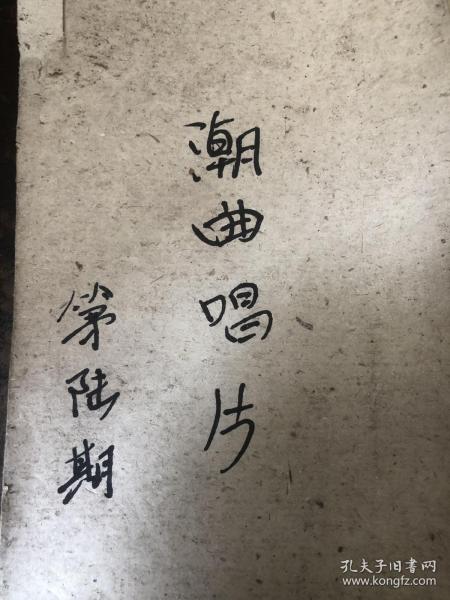 潮曲唱片
第陆期
孔夫子旧书网
www.kongfz.com